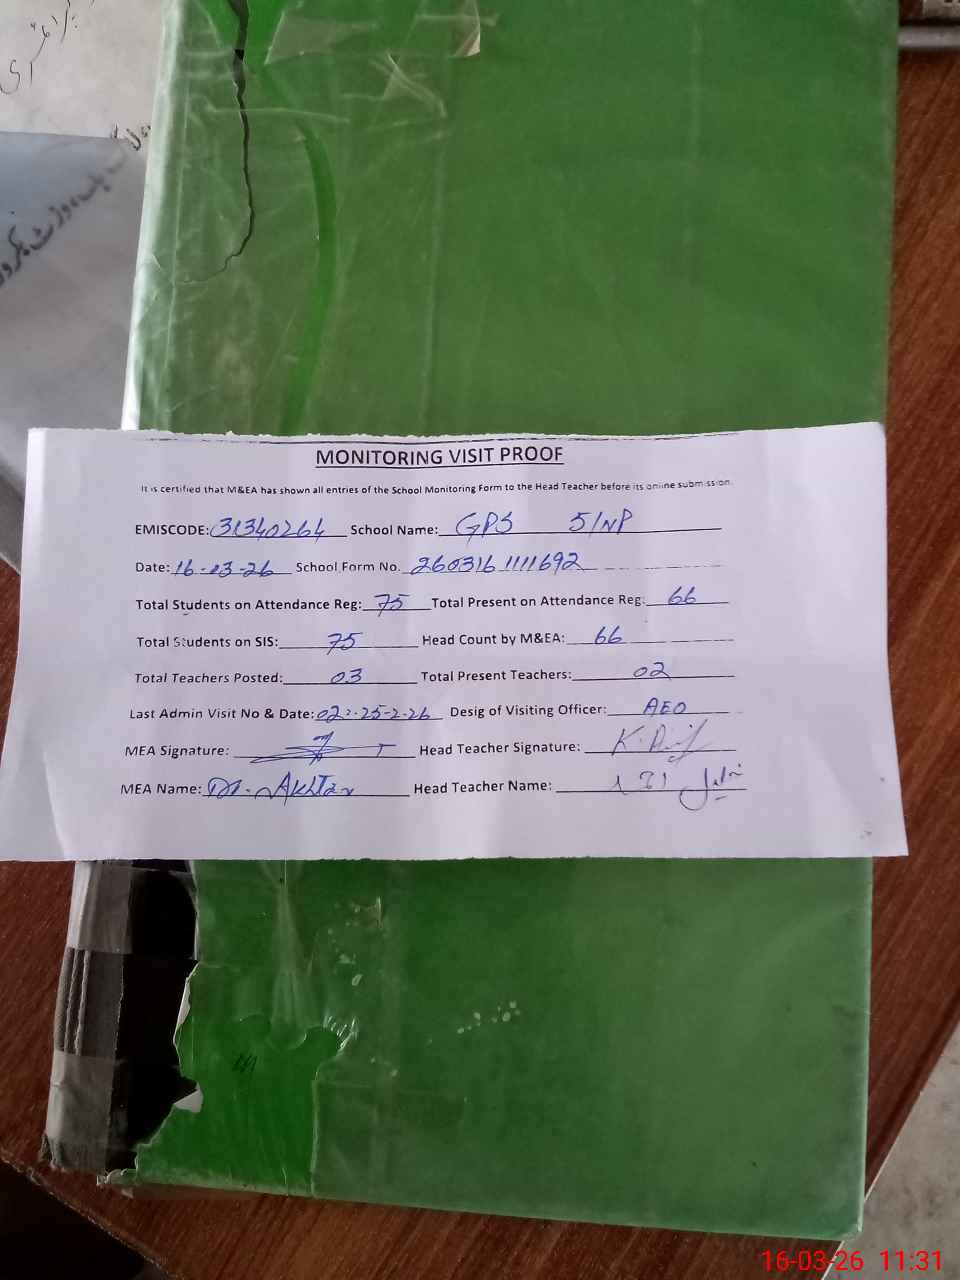 MONITORING VISIT PROOF
It is certified that M&EA has shown all entries of the School Monitoring Form to the Head Teacher before its online submission.
EMISCODE: 31340264 School Name: GPS 5/NP
Date: 16-03-26 School Form No. 2603161111692
Total Students on Attendance Reg: 75 Total Present on Attendance Reg: 66
Total Students on SIS: 75 Head Count by M&EA: 66
Total Teachers Posted: 03 Total Present Teachers: 02
Last Admin Visit No & Date: 02:-25-2-26 Desig of Visiting Officer: AEO
MEA Signature: Head Teacher Signature:
MEA Name: Akhtar Head Teacher Name:
16-03-26 11:31